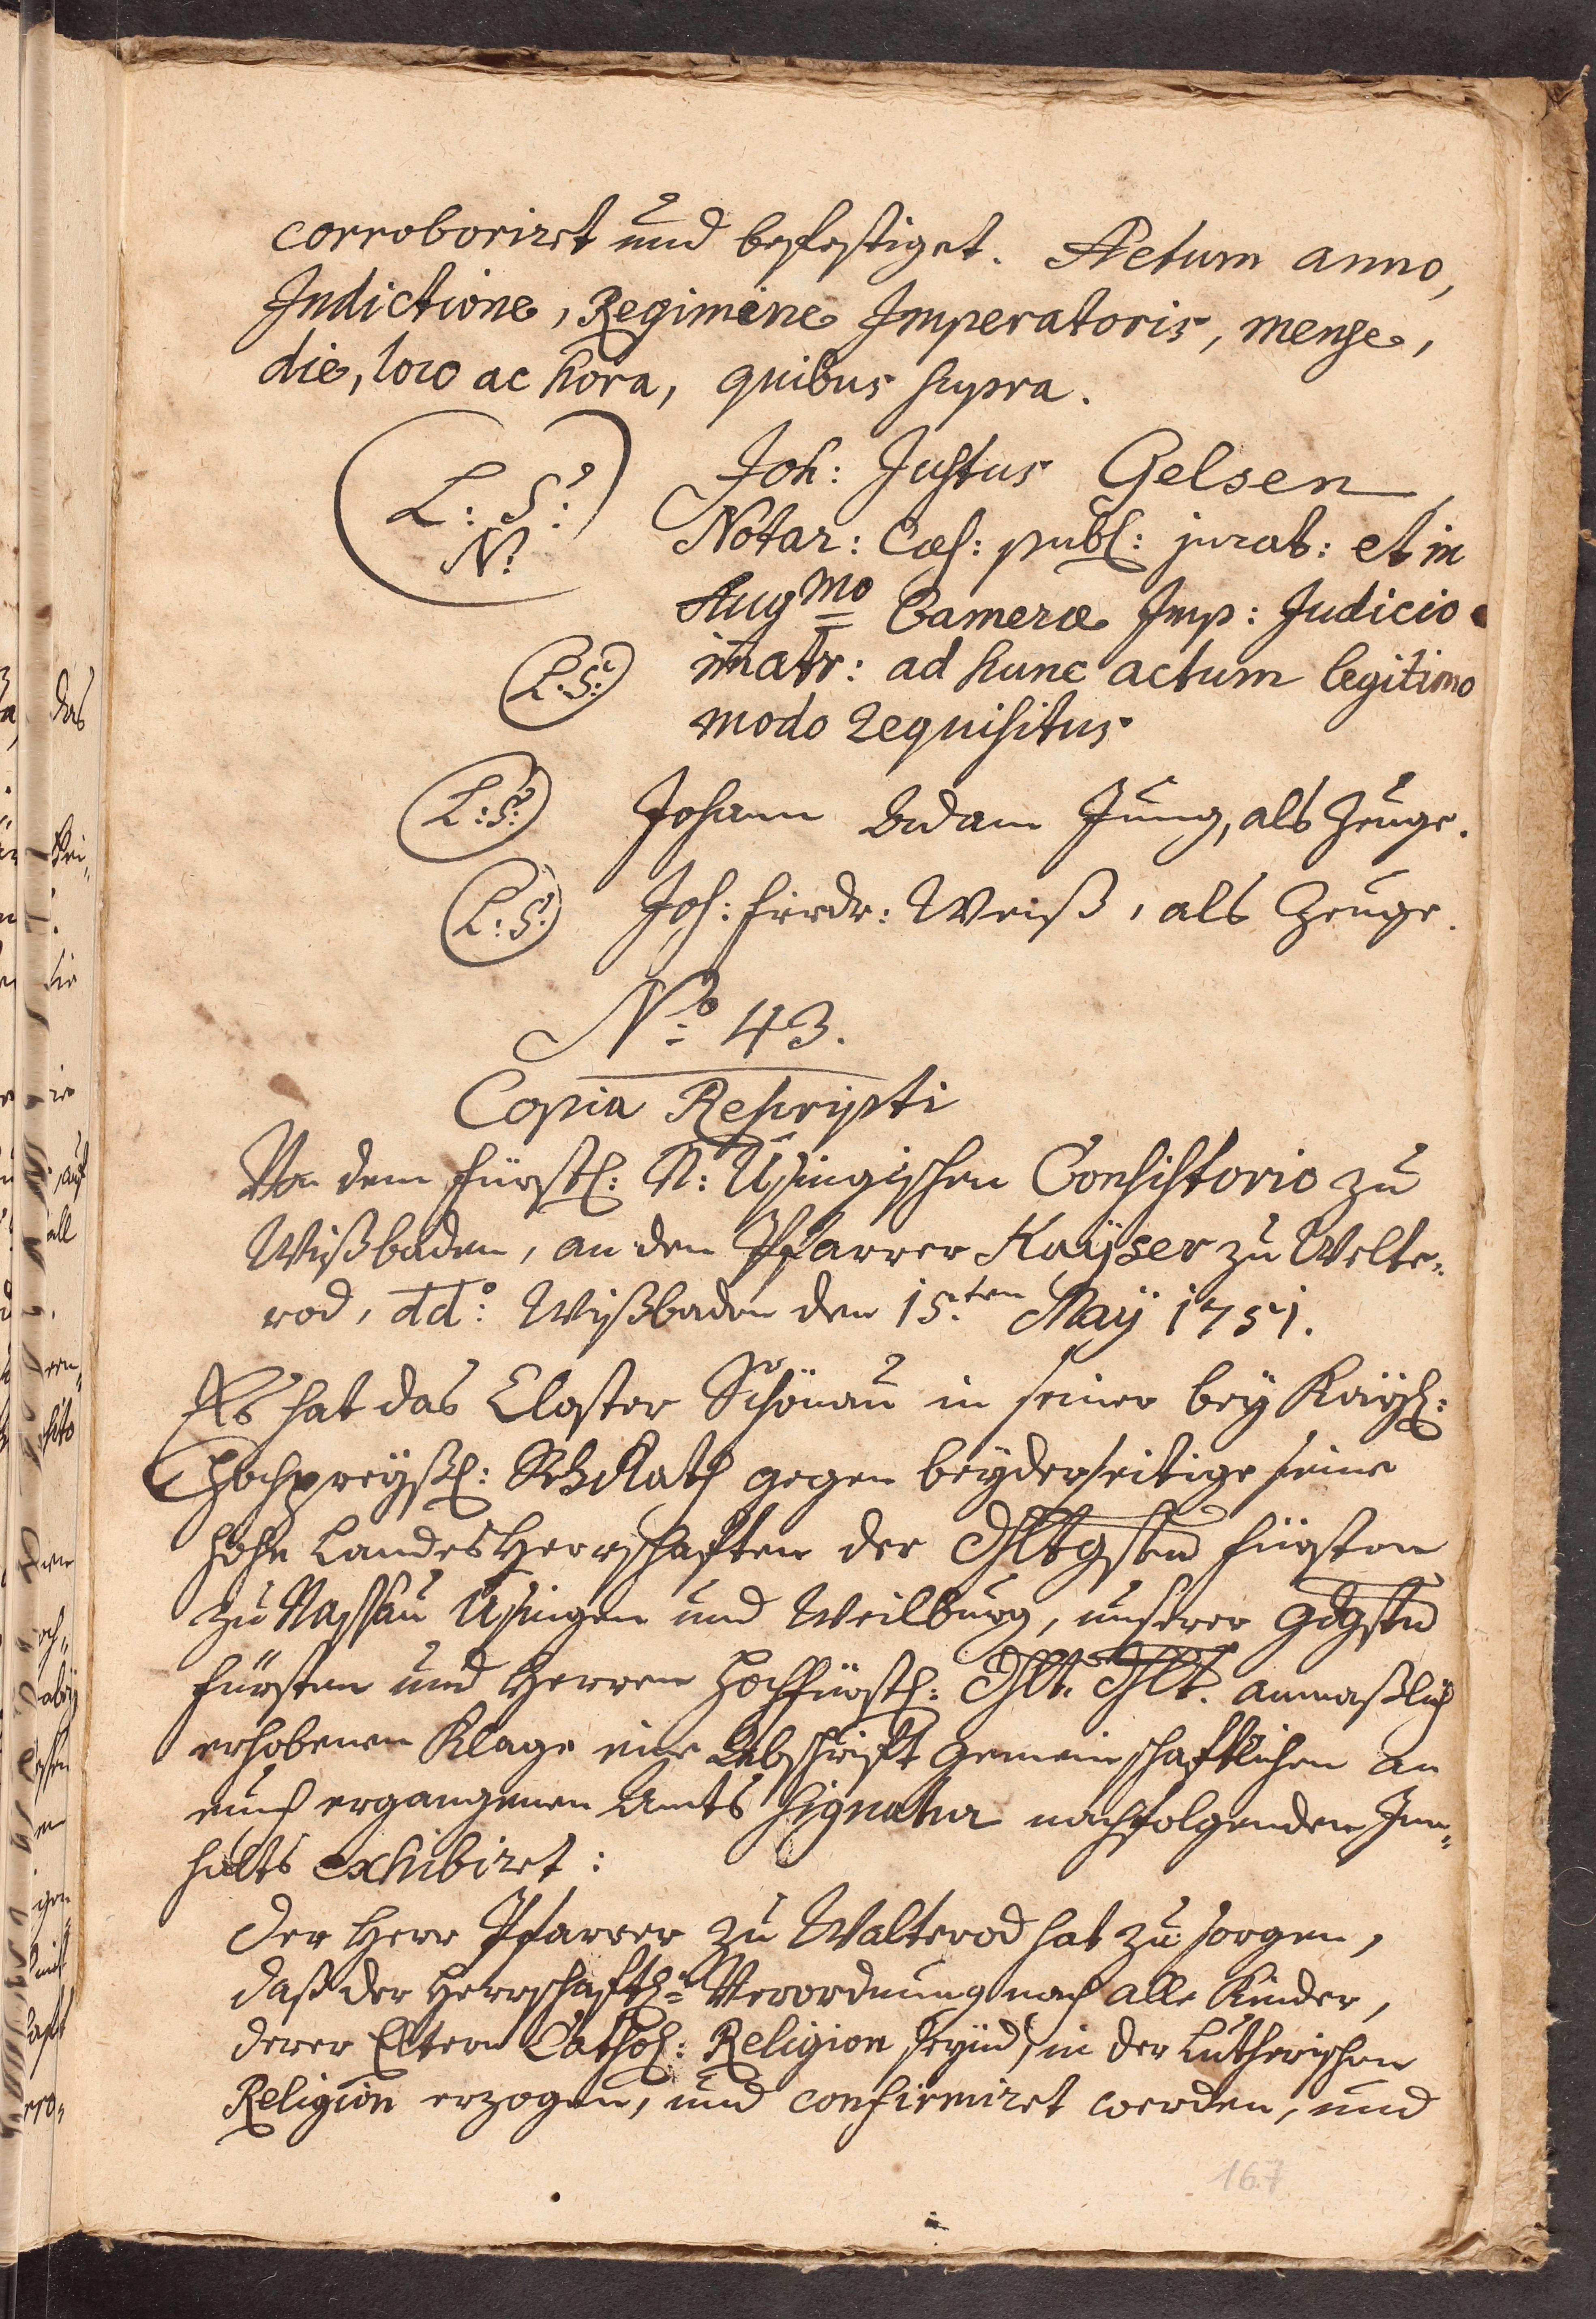 corroboriret und befestiget. Actum anno,
Indictione, Regimine Imperatoris, mense,
die, loco ac hora, quibus supra.
L: S:
N:
Joh: Justus Gelsen,
Notar: Cæs: publ: jurat: et in
Augmo Cameræ Imp: Judicio
L:S:
imatr: ad hunc actum legitimo
modo requisitus
L:S: Johann Adam Jung, als Zeuge.
L:S: Joh: Friedr: Weiß, als Zeuge.
No: 43.
Copia Rescripti
Von dem Fürstl: N: Usingischen Consistorio zu
Wißbaden, an den Pfarrer Kaÿser zu Welte-
rod, dd°: Wißbaden den 15.ten Maÿ 1751.
Es hat das Closter Schönau in seiner beÿ Kaÿsl:
Hochpreyßl: RhRath gegen beÿderseitige seine
hohe Landes Herrschafften der Dhltgsten Fürsten
zu Nassau Usingen und Weilburg, unserer gdgsten
Fürsten und Herren Hochfürstl: Dhlt. Dhlt. anmaßlich
erhobenen Klage eine Abschrifft gemeinschafftlichen an
euch ergangenen Amts Signatur nachfolgenden Inn-
halts exhibiret:
Der Herr Pfarrer zu Walterod hat zu sorgen,
daß der Herrschafftl: Verordnung nach alle Kinder,
derer Eltern Cathol: Religion seynd, in der Lutherischen
Religion erzogen, und confirmiret werden, und
167
das
auf
all